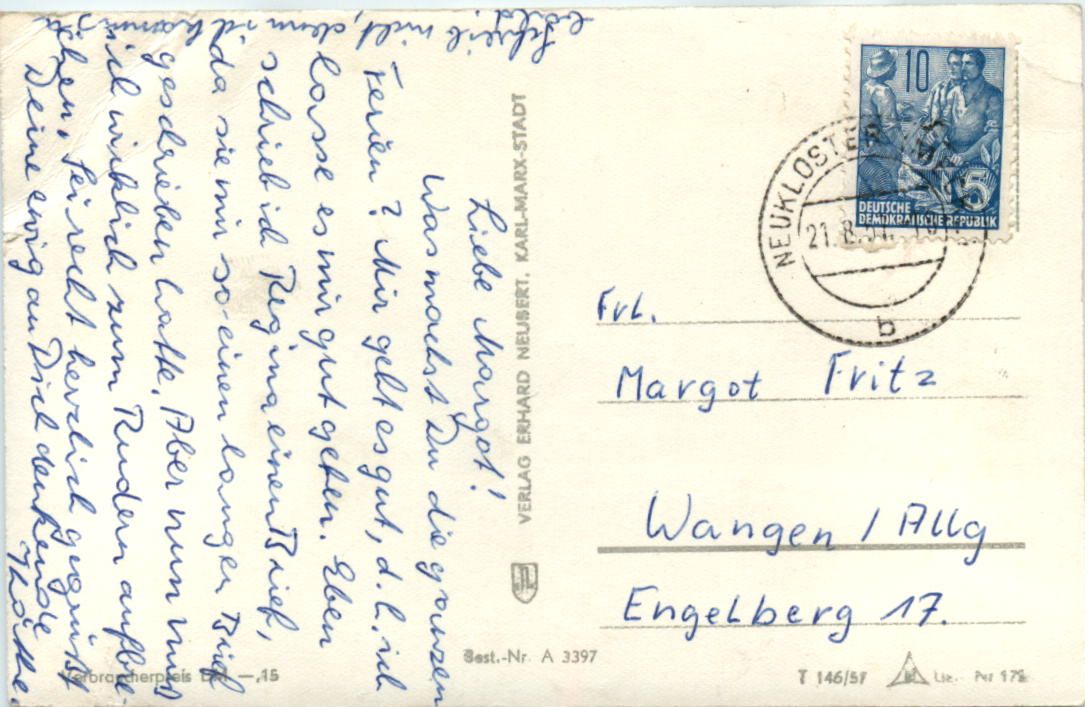 Liebe Margot!
Was machst Du die ganzen
Ferien? Mir geht es gut, d.h. ich
lasse es mir gut gehen. Eben
schrieb ich Regina einen Brief,
da sie mir so einen langen Brief
geschrieben hatte. Aber nun muß
ich wirklich zum Rudern aufbre-
chen. Sei recht herzlich gegrüßt
Deine ewig an Dich denkende
Käthe.
Schreib mir
bald
VERLAG ERHARD NEUBERT, KARL-MARX-STADT
10
+5
DEUTSCHE
DEMOKRATISCHE REPUBLIK
NEUKLOSTER
21.8.57.
b
Frl.
Margot Fritz
Wangen / Allg
Engelberg 17.
Verbraucherpreis DM —,15
Best.-Nr. A 3397
T 146/57